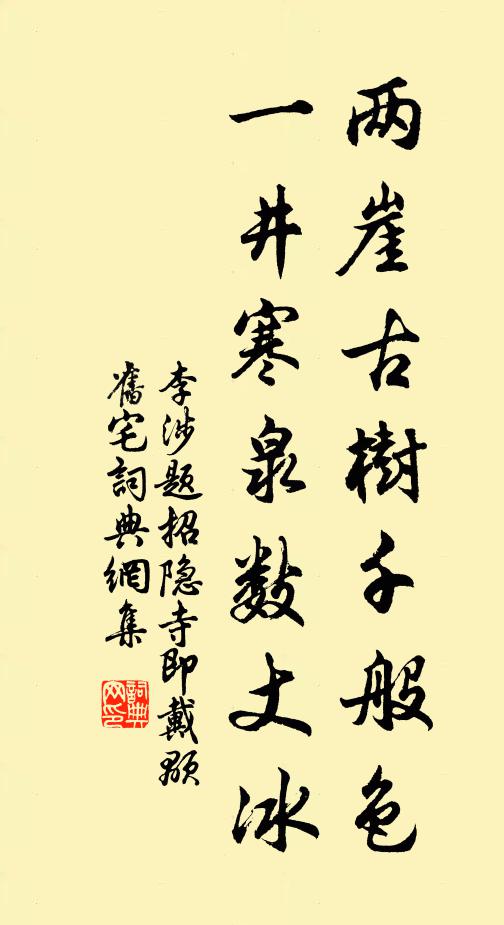 两崖古樹千般色
一井寒泉数丈冰
李涉題招隐寺即戴顒
舊宅詞典網集
詞典网印